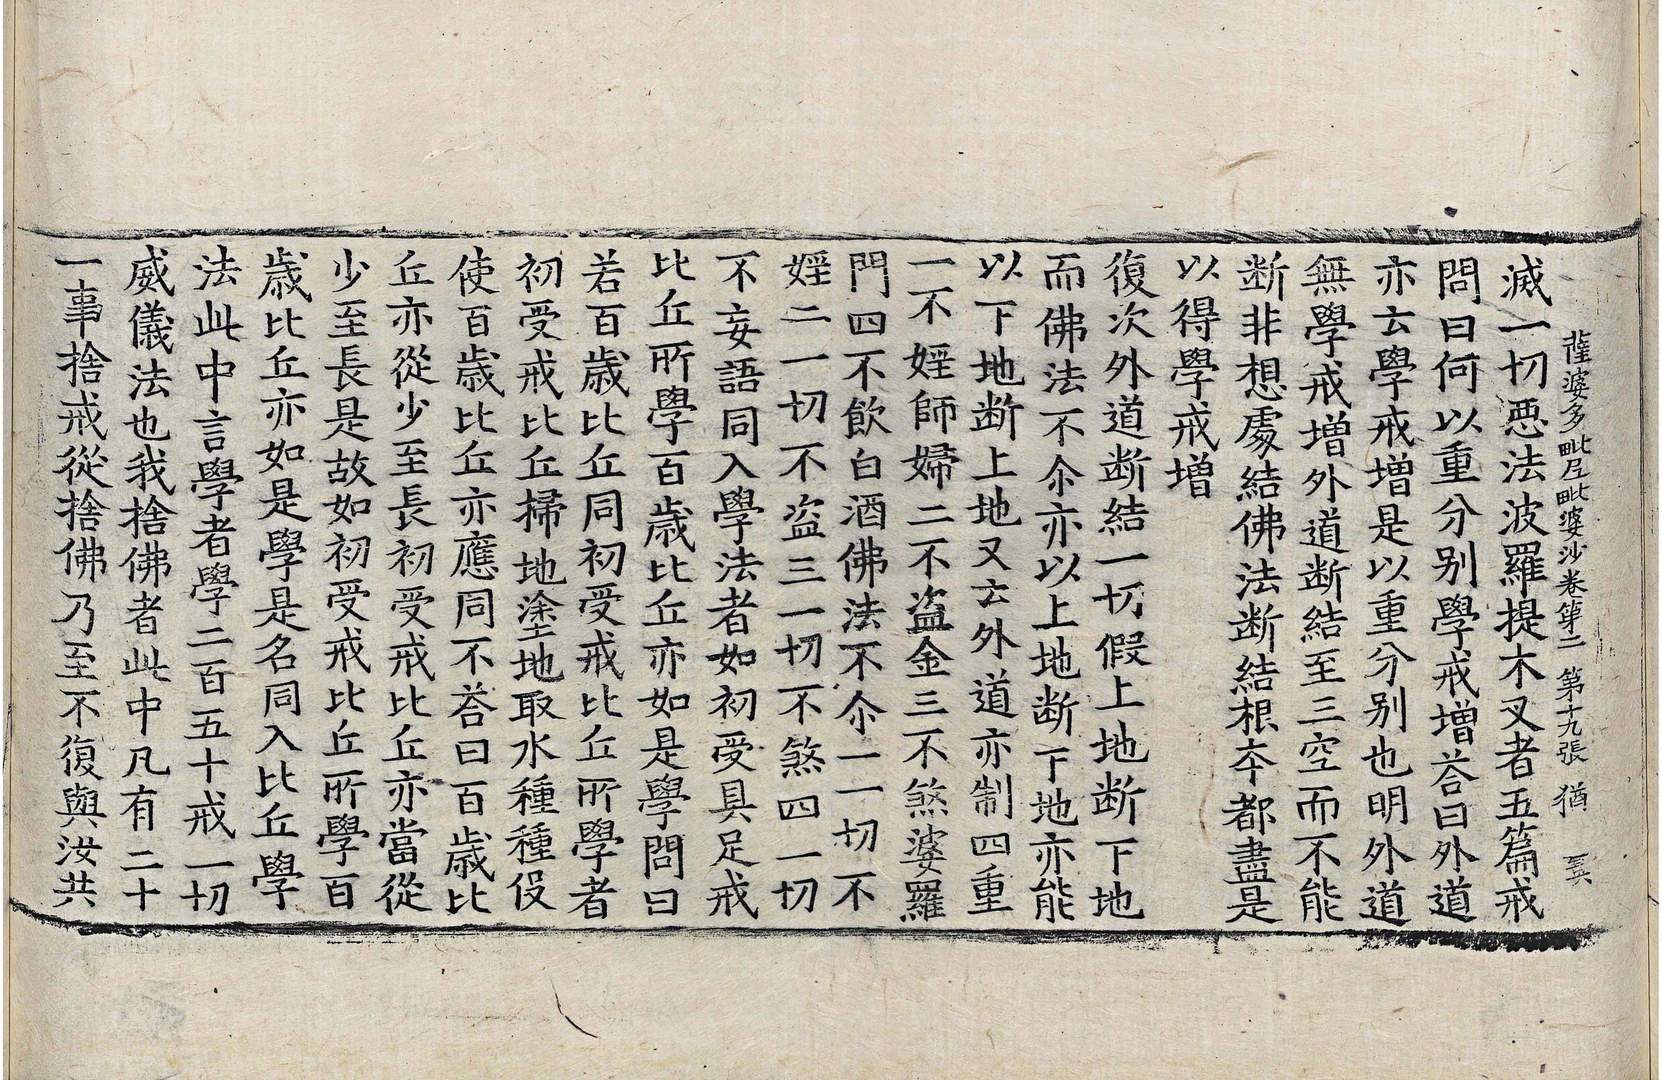 薩婆多毗尼毗婆沙卷第二 第十九張 猶
滅一切惡法波羅提木叉者五篇戒
問曰何以重分別學戒增荅曰外道
亦云學戒增是以重分別也明外道
無學戒增外道断結至三空而不能
断非想處結佛法断結根夲都盡是
以得學戒增
復次外道断結一切假上地断下地
而佛法不尒亦以上地断下地亦能
以下地断上地又云外道亦制四重
一不婬師婦二不盗金三不煞婆羅
門四不飲白酒佛法不尒一一切不
婬二一切不盗三一切不煞四一切
不妄語同入學法者如初受具足戒
比丘所學百歳比丘亦如是學問曰
若百歳比丘同初受戒比丘所學者
初受戒比丘掃地塗地取水種種伇
使百歳比丘亦應同不荅曰百歳比
丘亦從少至長初受戒比丘亦當從
少至長是故如初受戒比丘所學百
歳比丘亦如是學是名同入比丘學
法此中言學者學二百五十戒一切
威儀法也我捨佛者此中凡有二十
一事捨戒從捨佛乃至不復與汝共